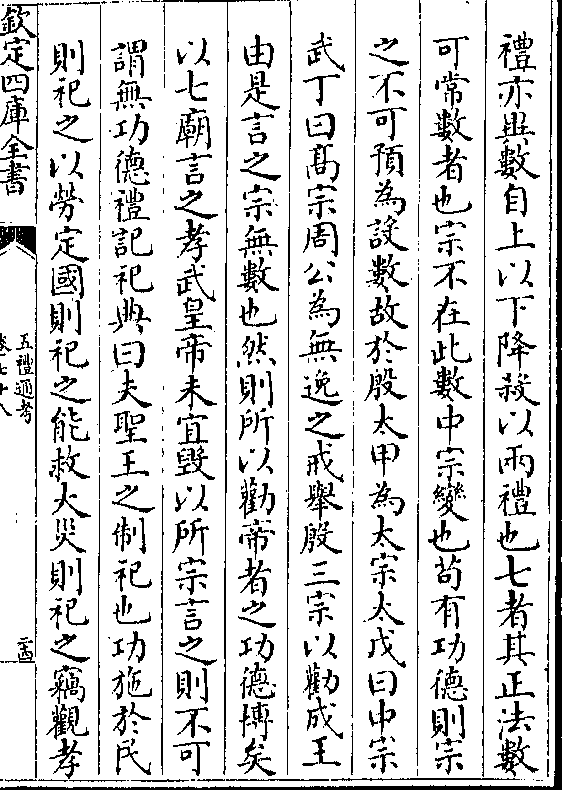 禮亦異數自上以下降殺以兩禮也七者其正法數
可常數者也宗不在此數中宗變也苟有功德則宗
之不可預為設數故於殷太甲為太宗太戊曰中宗
武丁曰高宗周公為無逸之戒舉殷三宗以勸成王
由是言之宗無數也然則所以勸帝者之功德博矣
以七廟言之孝武皇帝未宜毀以所宗言之則不可
謂無功德禮記祀典曰夫聖王之制祀也功施於民
則祀之以勞定國則祀之能救大災則祀之竊觀孝
欽定四庫全書
五禮通考
卷七十八
二十四